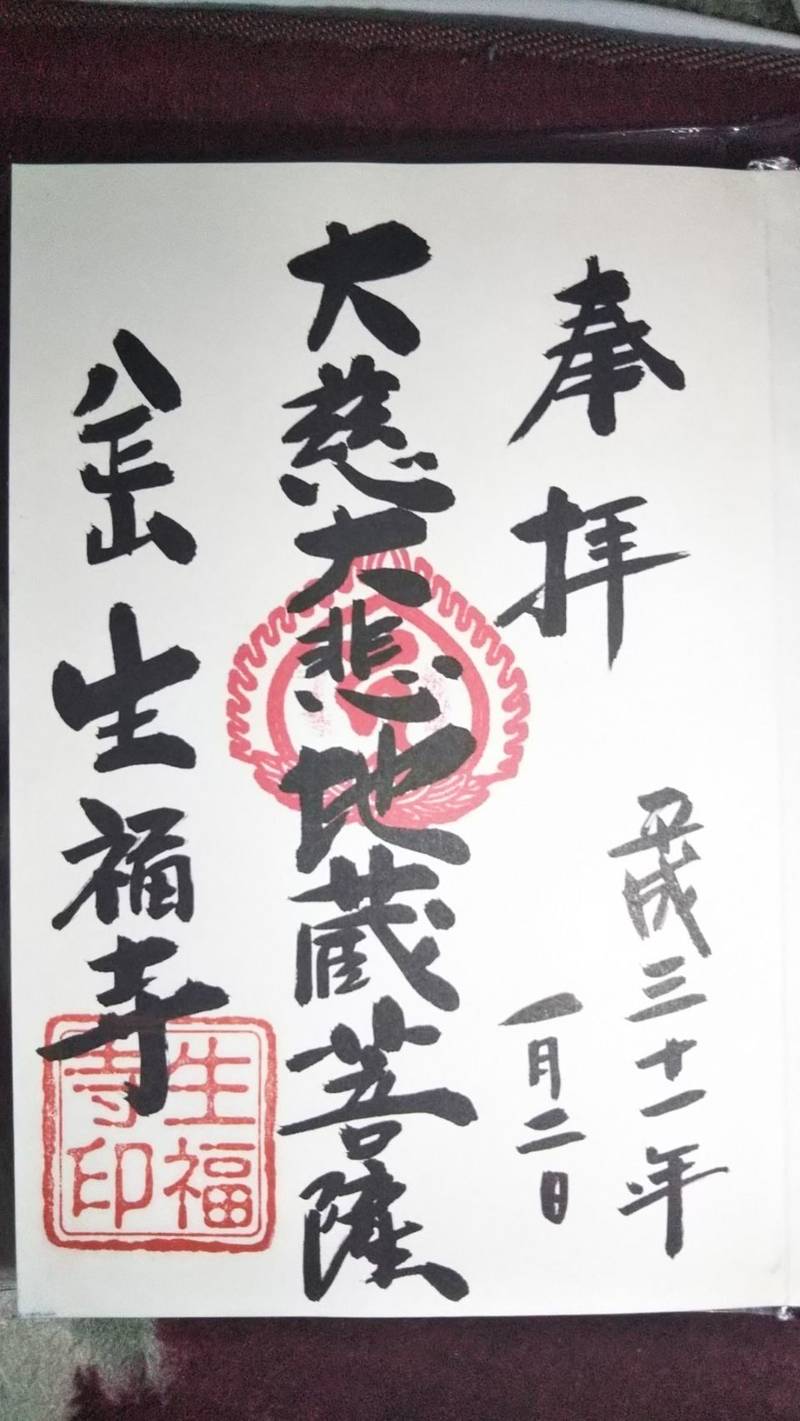 奉拝
平成三十一年
一月二日
大慈大悲地蔵菩薩
八正山 生福寺
生福寺印